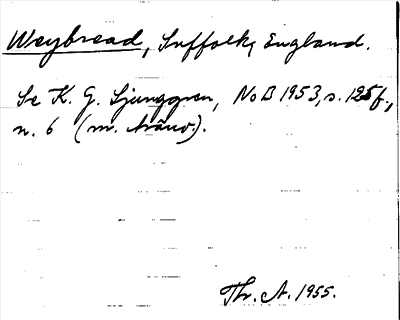 Weybread, Suffolk, England.
Se K. G. Ljunggren, NoB 1953, s. 125 f.,
n. 6 (m. hänv.).
Th. A. 1955.